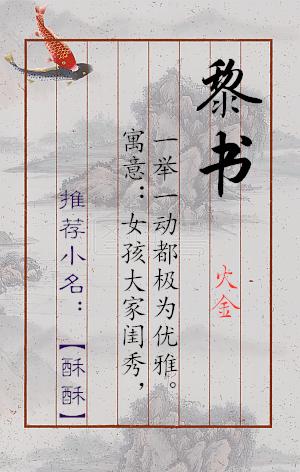 黎书
火金
寓意：女孩大家闺秀，
一举一动都极为优雅。
推荐小名：【酥酥】